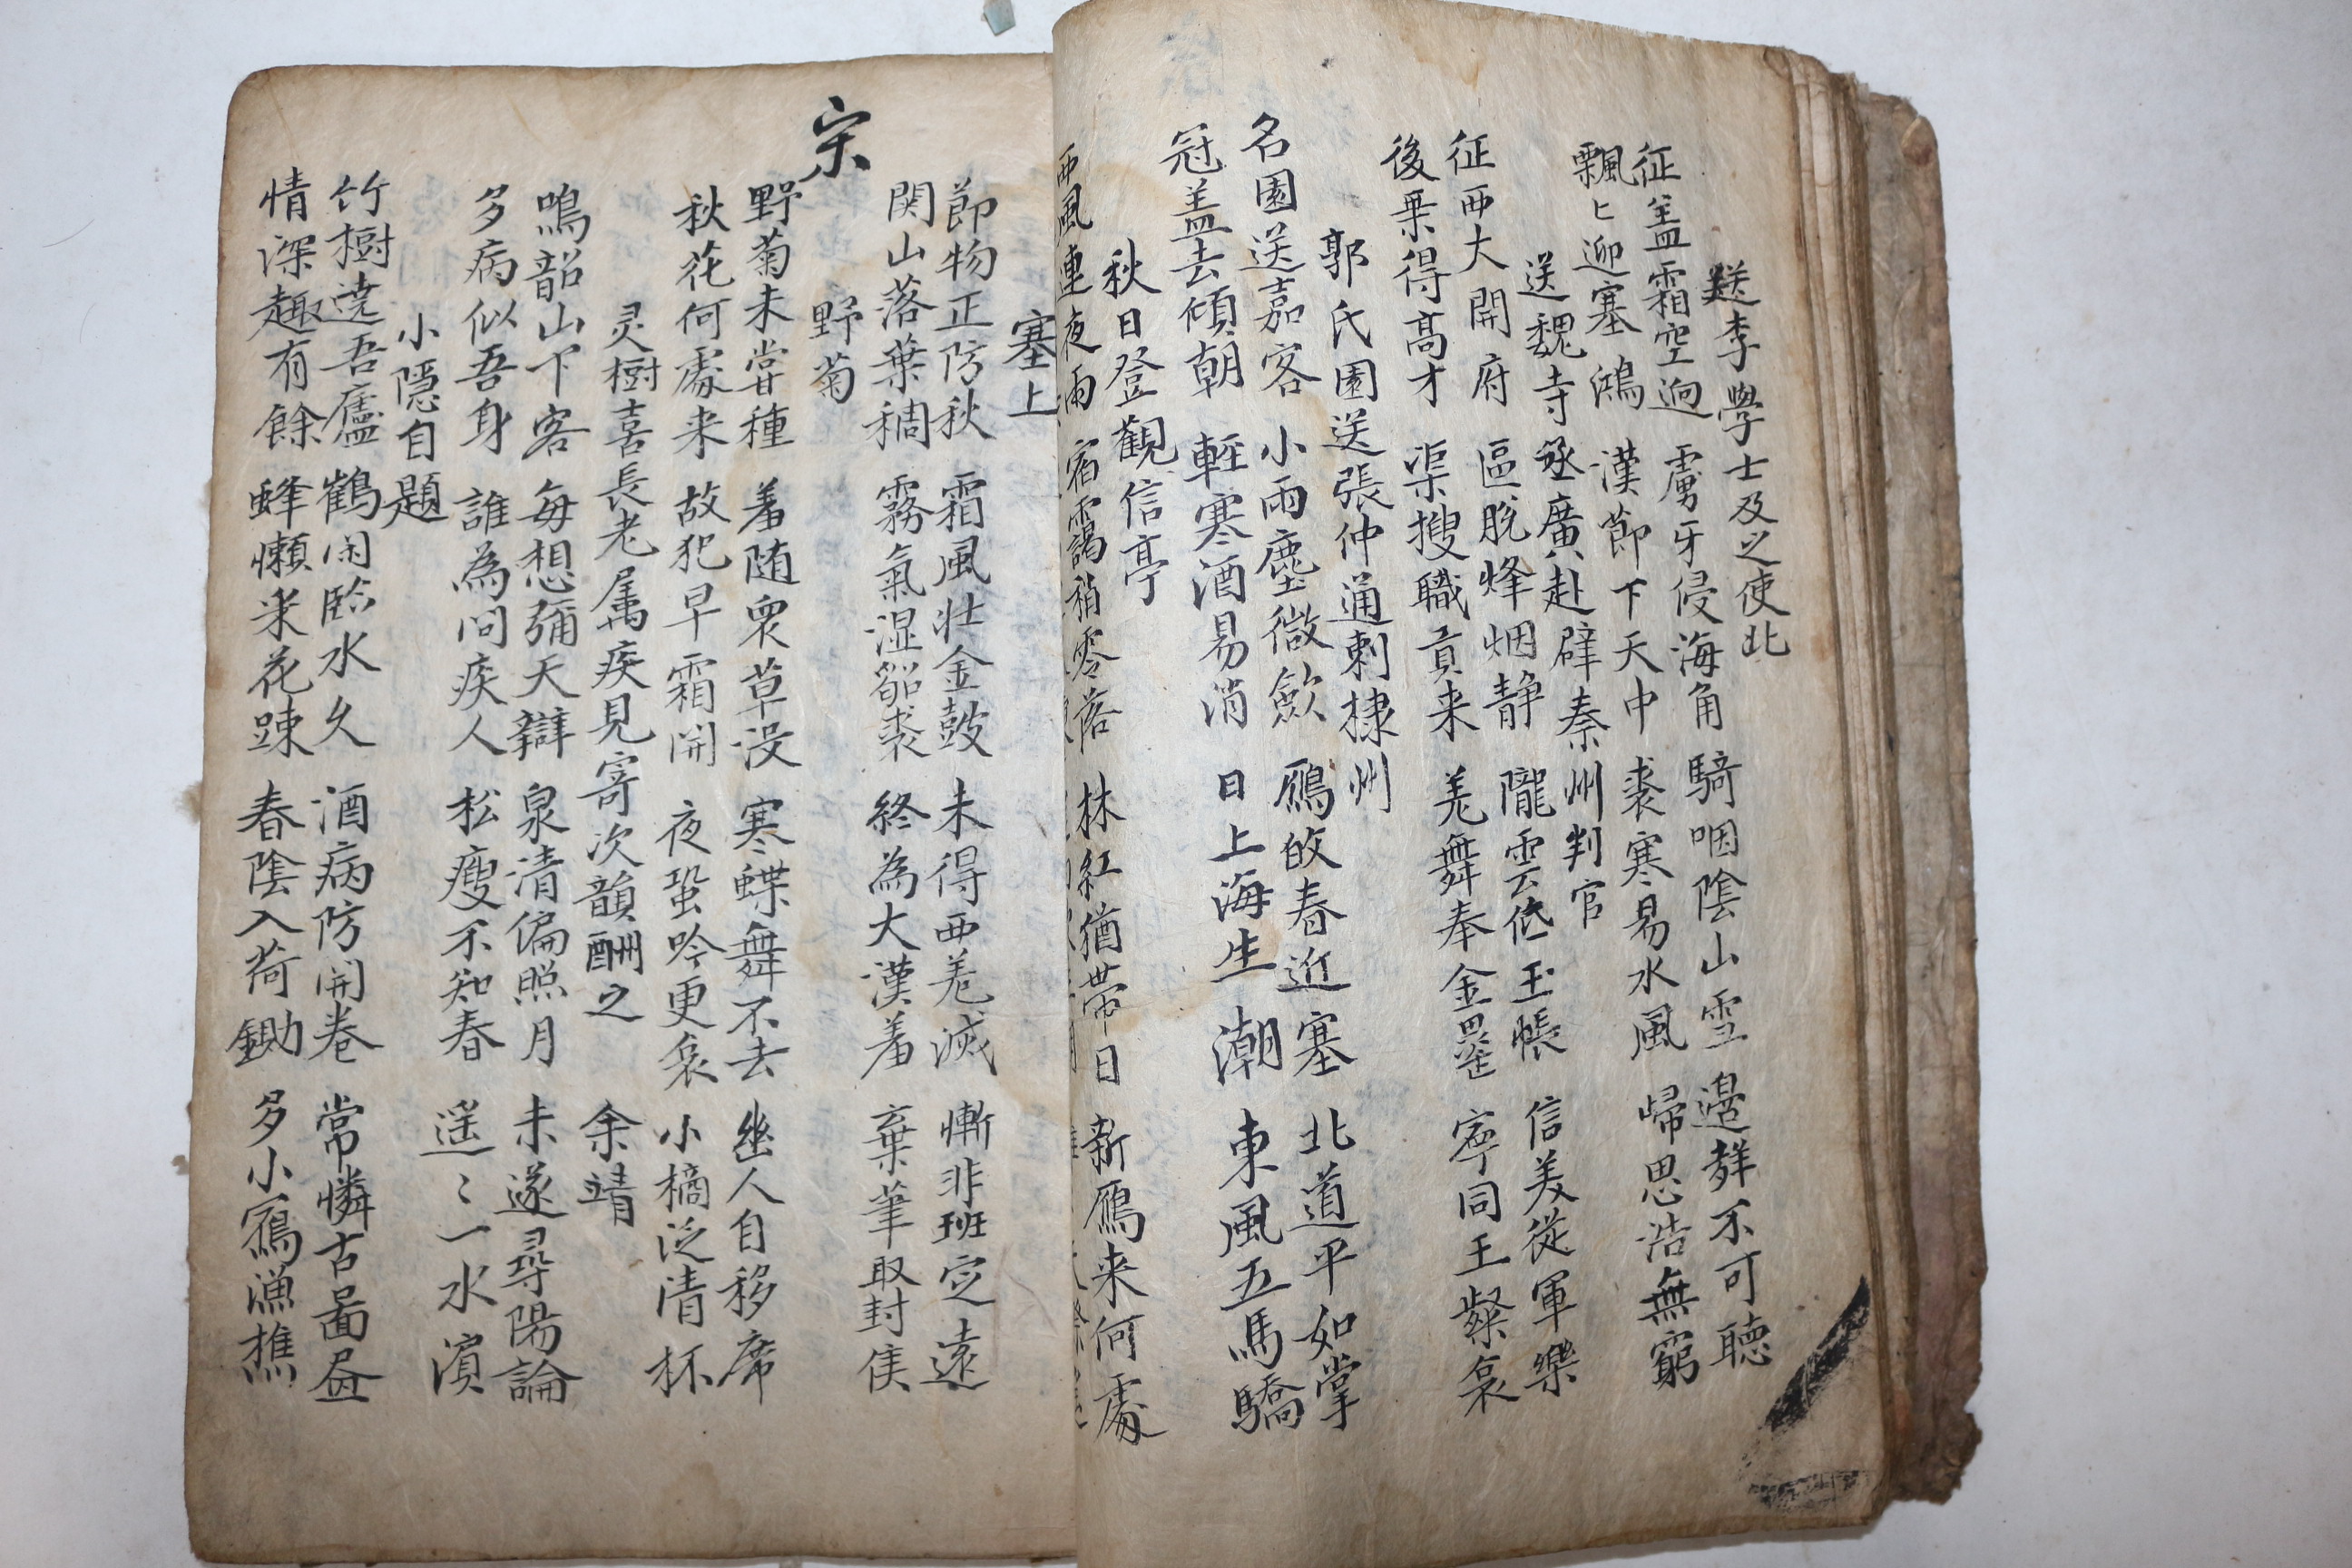 送李學士及之使北
征盖霜空逈 虜牙侵海角 騎咽陰山雪 邉聲不可聴
飄〻迎塞鴻 漢節下天中 裘寒易水風 帰思浩無窮
送魏寺丞廣赴辟秦州判官
征西大開府 區脱烽烟静 隴雲低玉帳 信美従軍樂
後乗得髙才 渠搜職貢来 羌舞奉金罍 寧同王粲哀
郭氏園送張仲通刺棣州
名園送嘉客 小雨塵微斂 鴈皈春近塞 北道平如掌
冠盖去傾朝 輕寒酒易消 日上海生潮 東風五馬驕
秋日登觀信亭
西風連夜雨 宿靄稍零落 林紅猶帯日 新鴈来何處
塞上
節物正防秋 霜風壮金鼓 未得西羌滅 慚非班定遠
関山落葉稠 霧氣湿貂裘 終為大漢羞 棄筆取封侯
宗
野菊
野菊未甞種 羞随衆草没 寒蝶舞不去 幽人自移席
秋花何處来 故犯早霜開 夜蛩吟更哀 小摘泛清杯
灵樹喜長老属疾見寄次韻酬之 余靖
鳴韶山下客 每想彌天辯 泉清偏照月 未遂尋陽論
多病似吾身 誰為問疾人 松瘦不知春 遥〻一水濱
小隱自題
竹樹遶吾廬 鶴閑臨水久 酒病防開巻 常憐古啚昼
情深趣有餘 蜂懶采花踈 春陰入荷鋤 多小寫漁樵